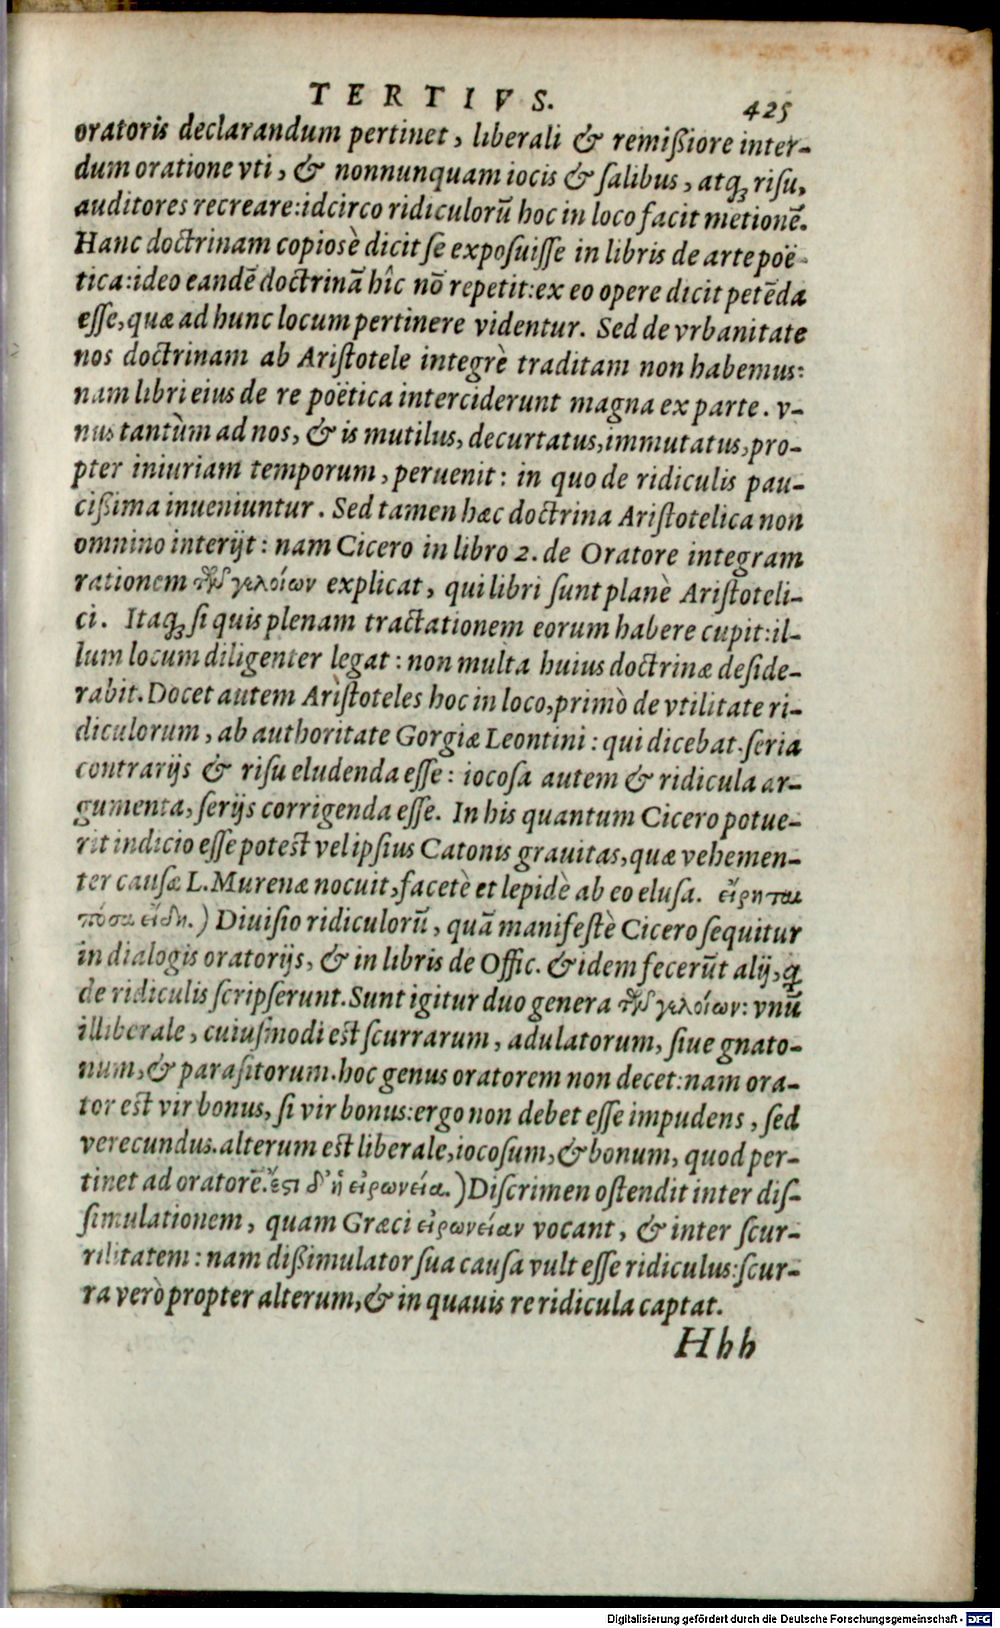 TERTIVS.
425
oratoris declarandum pertinet, liberali & remißiore inter-
dum oratione vti, & nonnunquam iocis & salibus, atq́ꝫ risu,
auditores recreare: idcirco ridiculorū hoc in loco facit metionē.
Hanc doctrinam copiosè dicit se exposuisse in libris de arte poë-
tica: ideo eandē doctrinā hîc nō repetit: ex eo opere dicit petēda
esse, quæ ad hunc locum pertinere videntur. Sed de vrbanitate
nos doctrinam ab Aristotele integrè traditam non habemus:
nam libri eius de re poëtica interciderunt magna ex parte. v-
nus tantùm ad nos, & is mutilus, decurtatus, immutatus, pro-
pter iniuriam temporum, peruenit: in quo de ridiculis pau-
cißima inueniuntur. Sed tamen hæc doctrina Aristotelica non
omnino interijt: nam Cicero in libro 2. de Oratore integram
rationem τῶν γελοίων explicat, qui libri sunt planè Aristoteli-
ci. Itaq́ꝫ si quis plenam tractationem eorum habere cupit: il-
lum locum diligenter legat: non multa huius doctrinæ deside-
rabit. Docet autem Aristoteles hoc in loco, primò de vtilitate ri-
diculorum, ab authoritate Gorgiæ Leontini: qui dicebat. seria
contrarijs & risu eludenda esse: iocosa autem & ridicula ar-
gumenta, serijs corrigenda esse. In his quantum Cicero potue-
rit indicio esse potest vel ipsius Catonis grauitas, quæ vehemen-
ter causæ L. Murenæ nocuit, facetè et lepidè ab eo elusa. εἴρηται
πόσα εἴδη.) Diuisio ridiculorū, quā manifestè Cicero sequitur
in dialogis oratorijs, & in libris de Offic. & idem fecerūt alij, q̄
de ridiculis scripserunt. Sunt igitur duo genera τῶν γελοίων: vnū
illiberale, cuiusmodi est scurrarum, adulatorum, siue gnato-
num, & parasitorum. hoc genus oratorem non decet: nam ora-
tor est vir bonus, si vir bonus: ergo non debet esse impudens, sed
verecundus. alterum est liberale, iocosum, & bonum, quod per-
tinet ad oratorē. ἔστι δ' ἡ εἰρωνεία.) Discrimen ostendit inter dis-
simulationem, quam Græci εἰρωνείαν vocant, & inter scur-
rilitatem: nam dißimulator sua causa vult esse ridiculus: scur-
ra verò propter alterum, & in quauis re ridicula captat.
Hhh
Digitalisierung gefördert durch die Deutsche Forschungsgemeinschaft - DFG